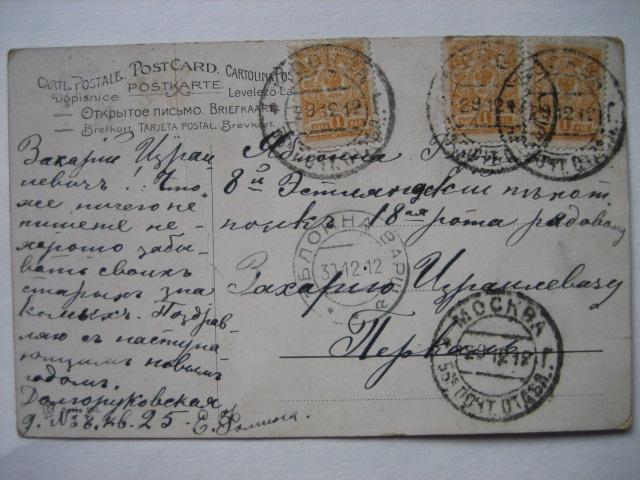 CARTE POSTALE. POSTCARD. CARTOLINA POS
Dopisnice. POSTKARTE. Levelező-La
ОТКРЫТОЕ ПИСЬМО. BRIEFKAART
Brefkort. TARJETA POSTAL. Brevkort.
Захарій Израи
левичъ! Что
же ничего не
пишете не-
хорошо забы-
вать своихъ
старыхъ зна
комыхъ. Поздрав
ляю с наступа
ющимъ новымъ
годомъ.
Долгоруковская
д. № кв. 25. Е.
Serie
Яблонна
8й Эстляндскій пѣхот.
полкъ 18ая рота рядовому
Захарію Израилевичу
МОСКВА
29.12.12
ПОЧТ. ОТДѢЛ.
ЯБЛОННА ВАРШ.
30.12.12
МОСКВА
29.12.12
55е ПОЧТ. ОТДѢЛ.